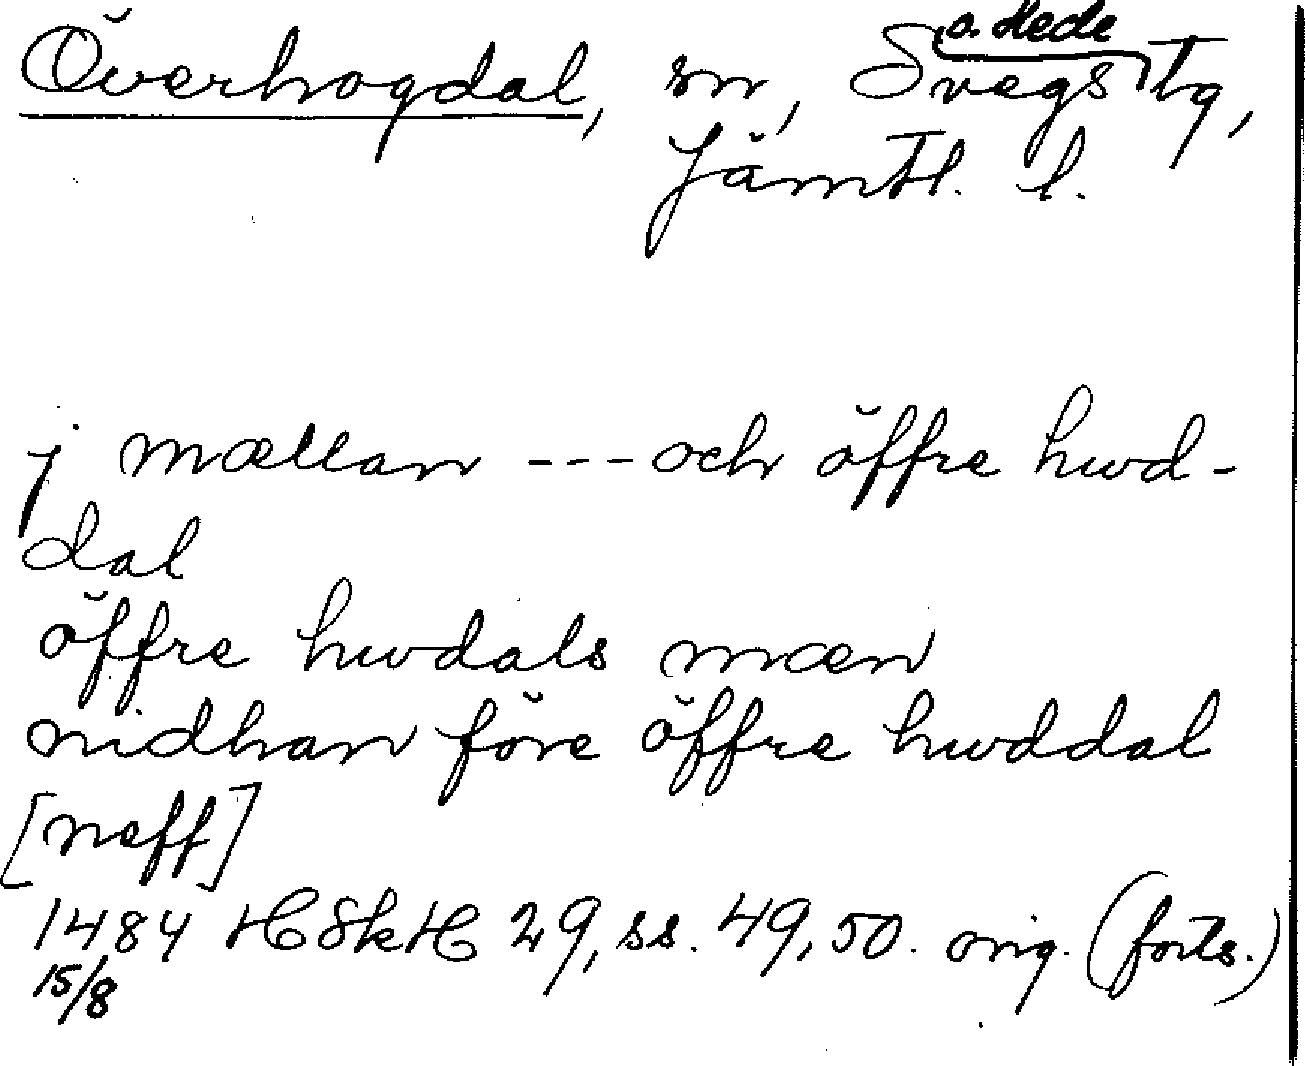 Överhogdal, sn, Svegs o. Hede tg,
Jämtl. l.
j mællan --- och öffre hwd-
dal
öffre hwdals mæn
nidhan före öffre hwddal
[neff]
1484 HSkH 29, ss. 49, 50. orig. (forts.)
15/8